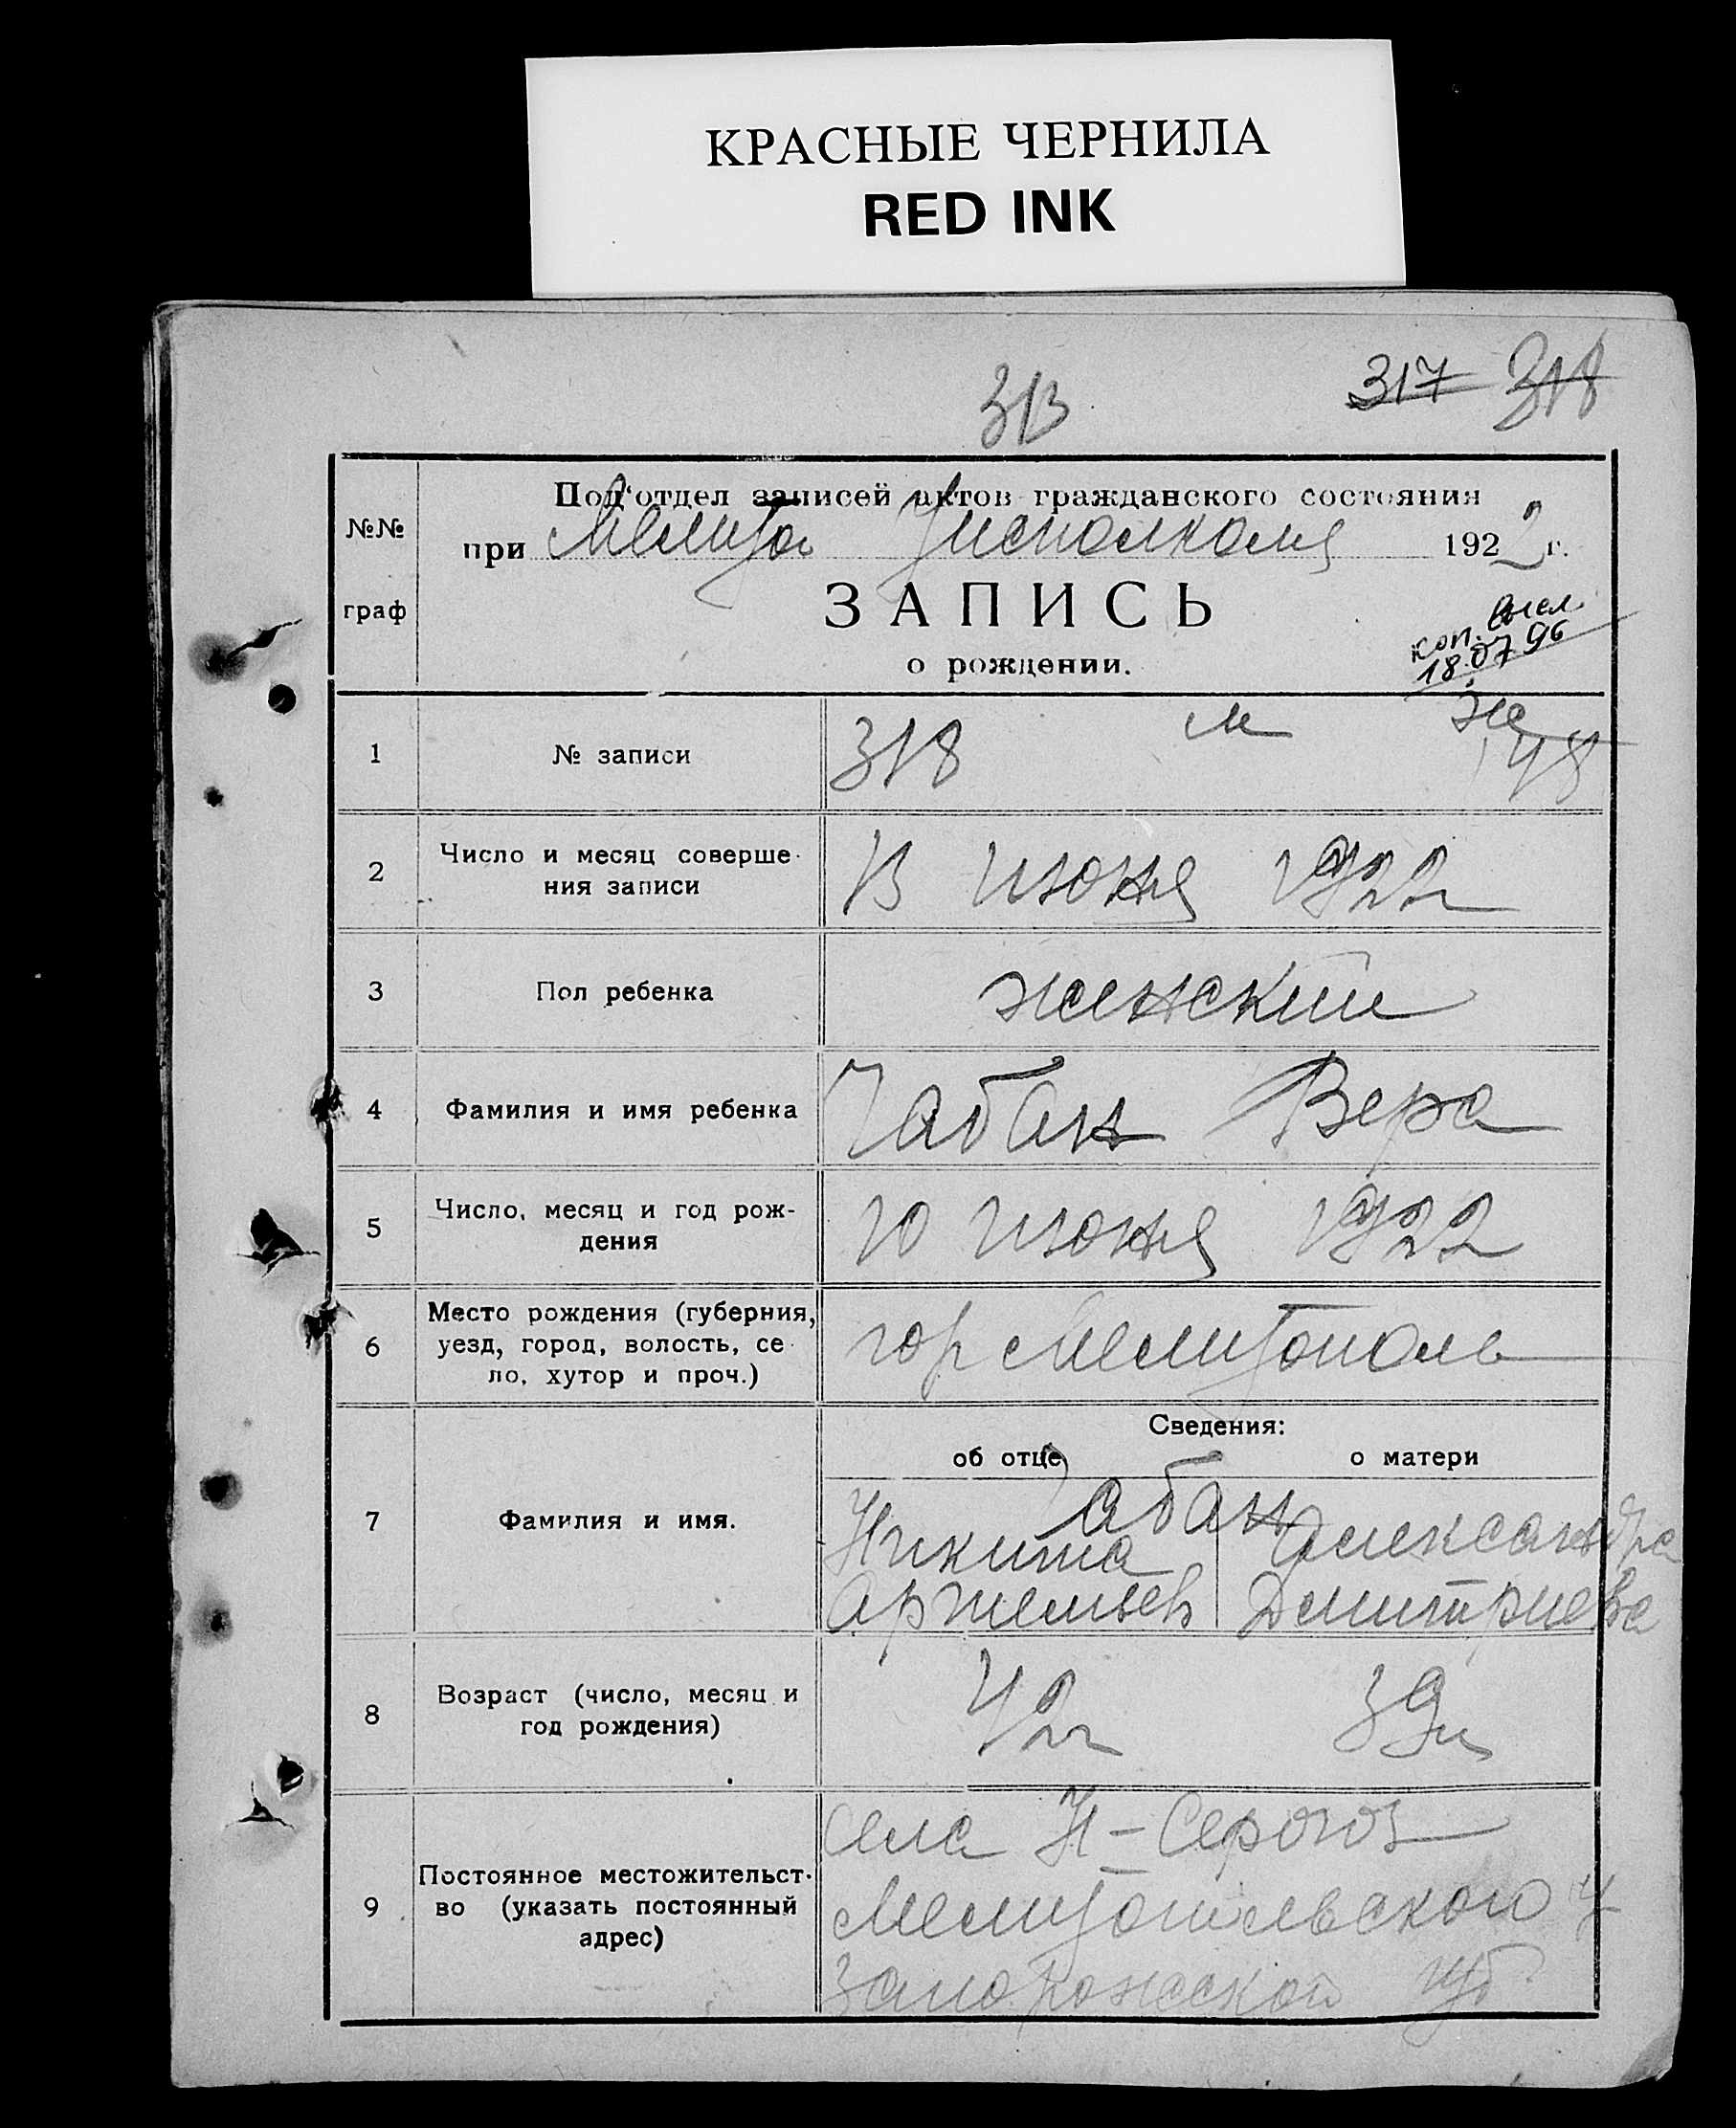 КРАСНЫЕ ЧЕРНИЛА
RED INK
313 317 318
Под'отдел записей актов гражданского состояния
№№
при Мелито Уисполкома 1922 г.
граф
ЗАПИСЬ
о рождении.
коп. высл.
18.07 96
1 № записи 318 м же
148
2 Число и месяц соверше-
ния записи
13 июня 1922
3 Пол ребенка женский
4 Фамилия и имя ребенка Чабан Вера
5 Число, месяц и год рож-
дения
10 июня 1922
6 Место рождения (губерния,
уезд, город, волость, се-
ло, хутор и проч.)
гор Мелитополь
Сведения:
об отце о матери
7 Фамилия и имя.
Чабан
Никита Александра
Артемьев Дмитриева
8 Возраст (число, месяц и
год рождения)
42 г 39 л
9 Постоянное местожительст-
во (указать постоянный
адрес)
села Н-Серогоз
Мелитопольского у
Запорожской губ